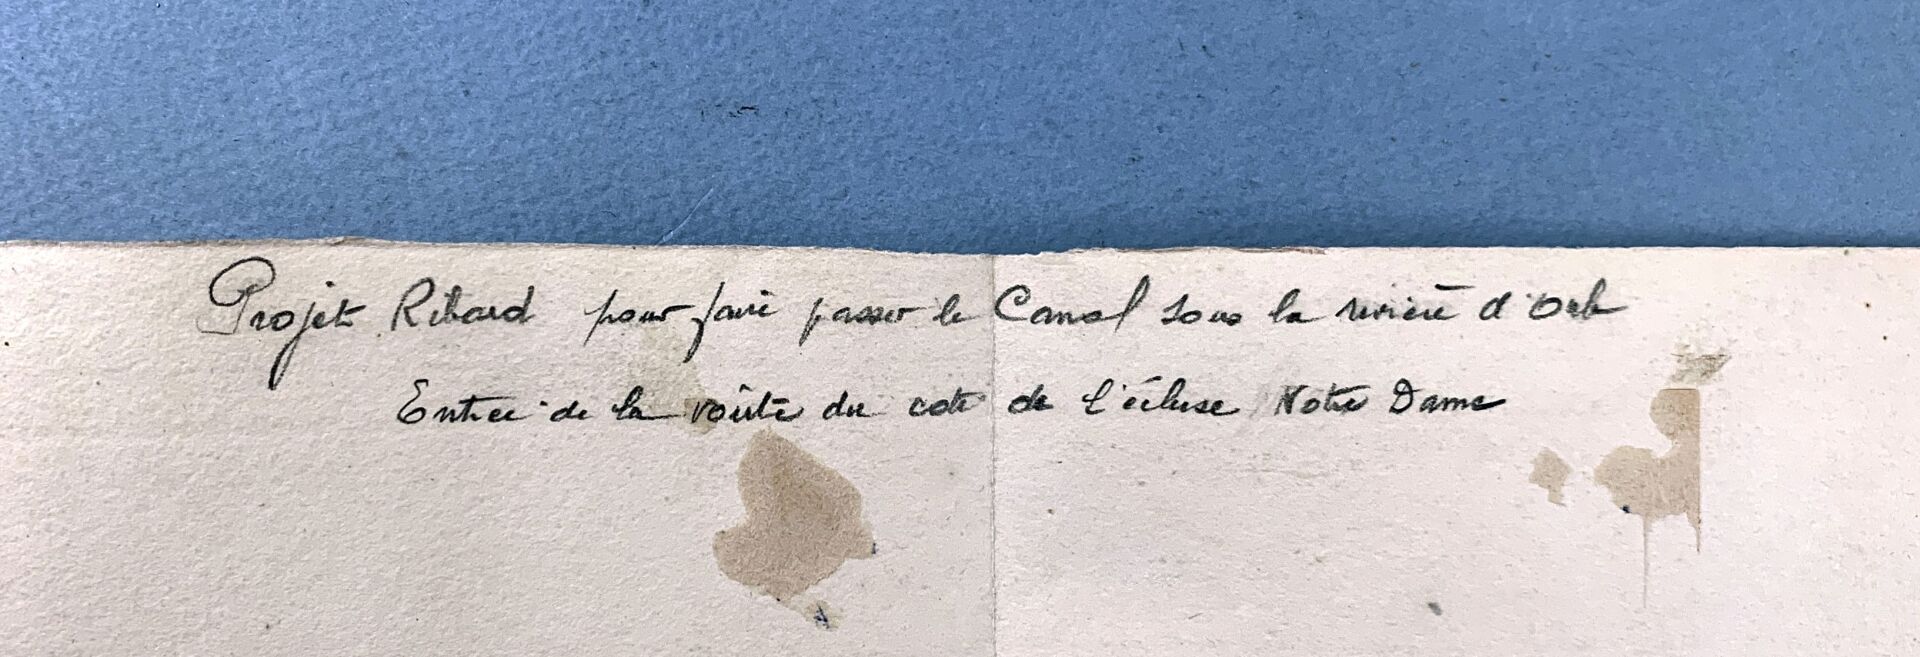 Projet Ribard pour faire passer le Canal sous la rivière d'Orb
Entrée de la voûte du coté de l'écluse Notre Dame